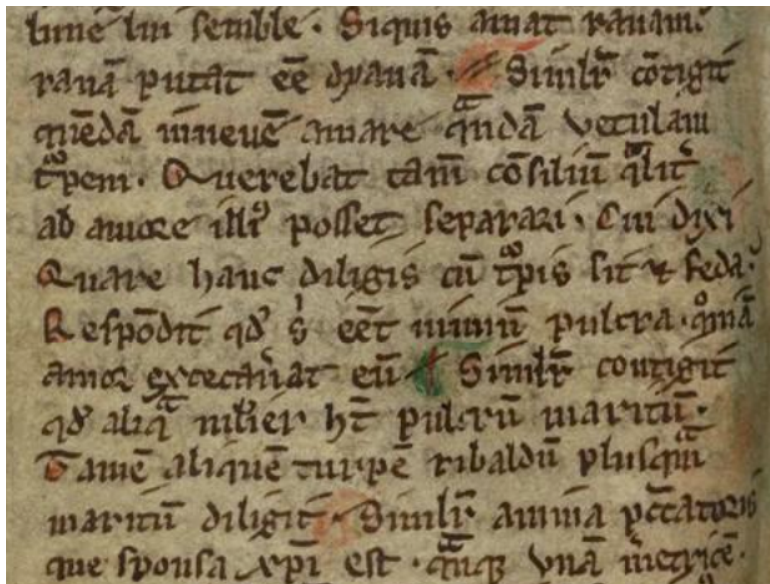 lime sui semble. Siquis amat ranam.
ranā putat eē dyanā. Similr̄ cōtigit
quēdā iuuenē amare qͣndā vetulam
tͦpem. Querebat tam̄ cōsiliū qͣlit᷒
ab amore illiꝰ posset separari. Cui dixi
Quare hanc diligis cū tͦpis sit ⁊ feda.
Respōdit qd' sⁱ eēt nimiū pulcra. qͦniā
amor excecau᷒at eū Similr̄ contigit
qd' aliqͣ mulier ht̄ pulcrū maritū.
Tamē aliquē turpē ribaldū plusqͣm
maritū diligit. Similr̄ anima pcc̄atoris
que sponsa xp̄i est.